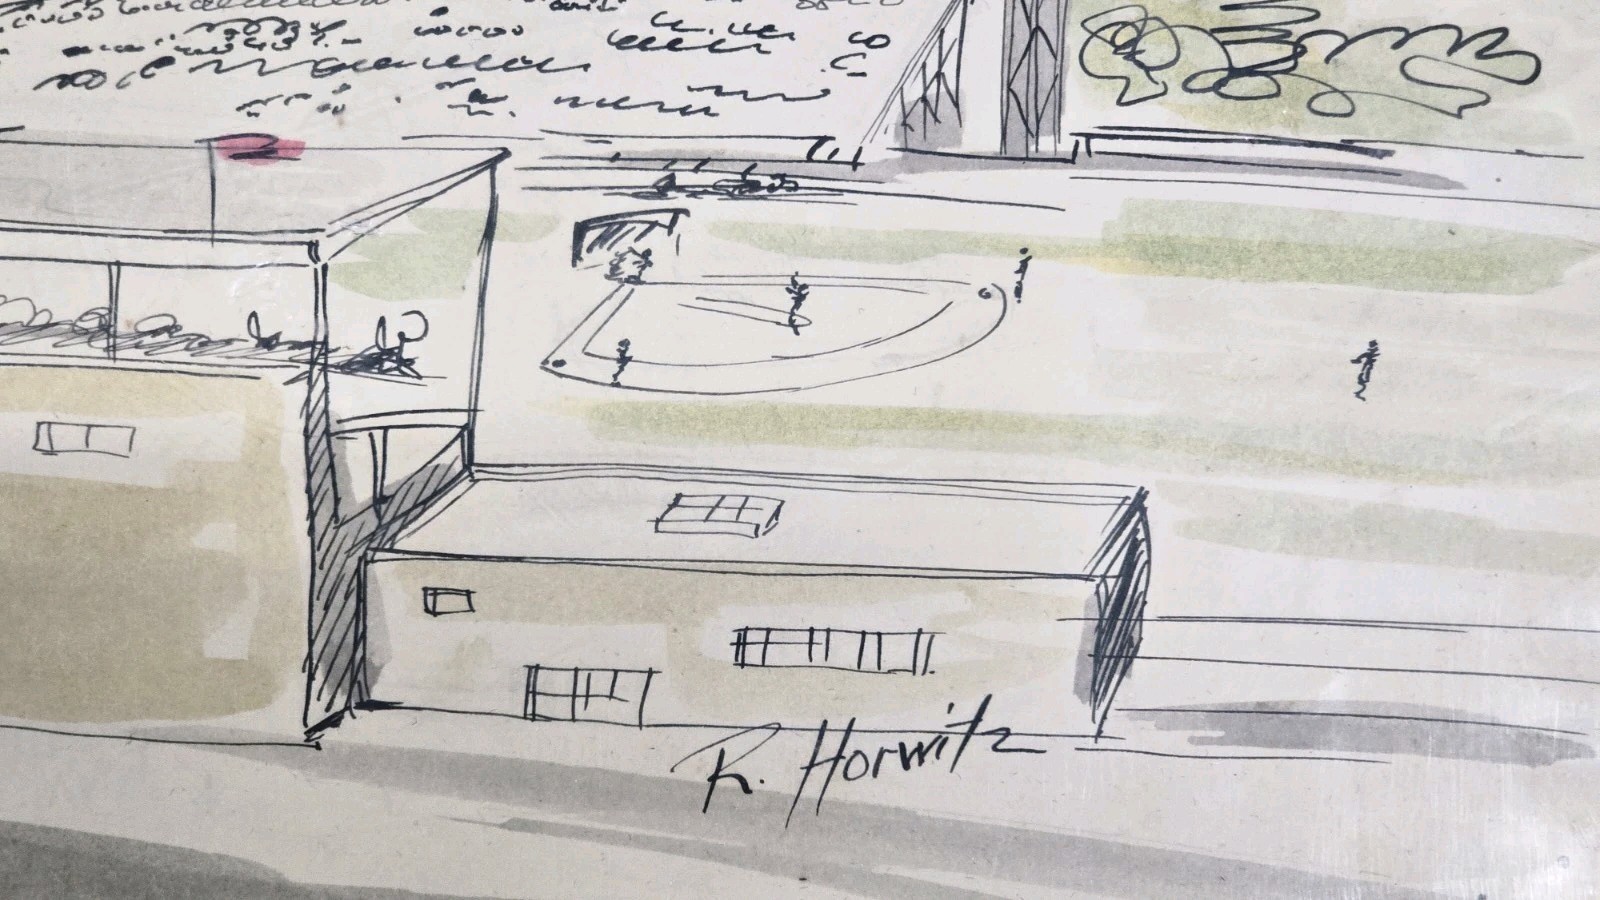 R. Horwitz